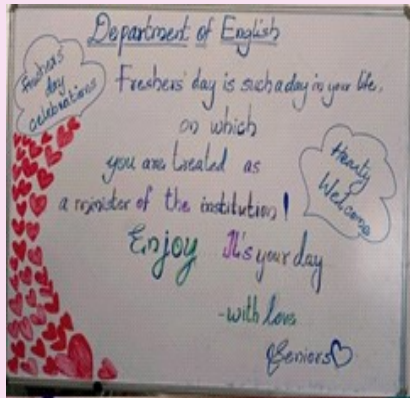 Department of English
Freshers' day celebrations
Freshers' day is such a day in your life,
on which
you are treated as
a minister of the institution!
Hearty Welcome
Enjoy It's your day
-with love
Seniors